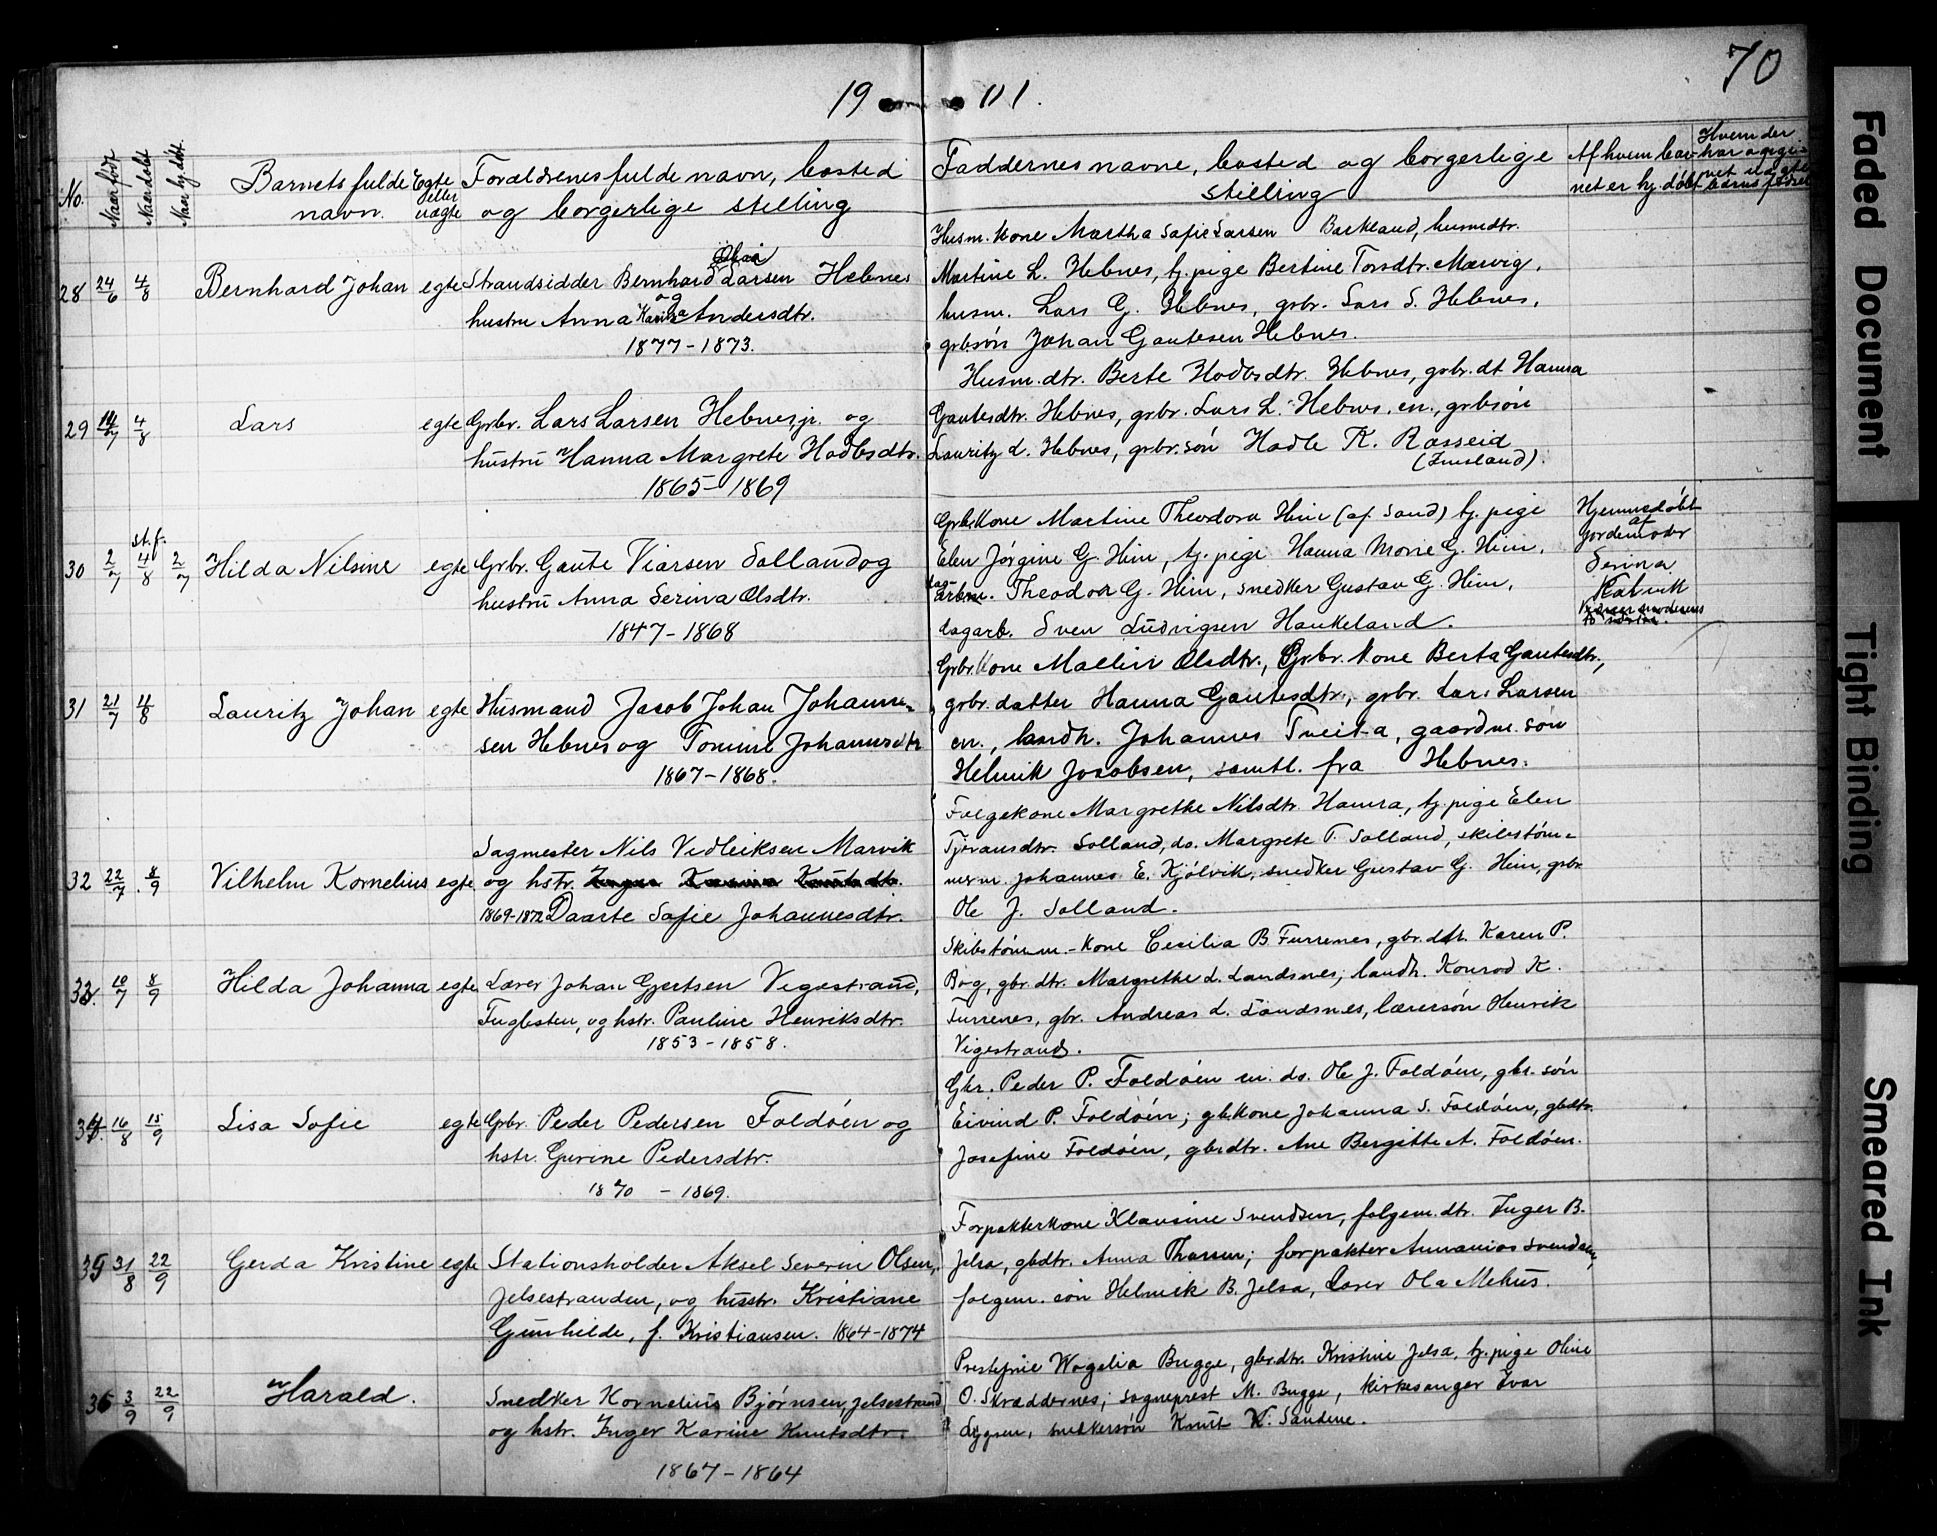 70
19 01.
No. Naar født Naar døbt Naar hj. døbt. Barnets fulde navn. Egte eller uægte Forældrenes fulde navn, bosted og borgerlige stilling Faddernes navne, bosted og borgerlige stilling Af hvem barnet er hj. døbt Hvem der har opgivet
28 24/6 4/8 Bernhard Johan egte Strandsidder Bernhard Larsen Hebnes
og
hustru Anna Karina Andersdtr.
1877-1873.
Husm. kone Martha Sofie Larsen Barkland, husmdtr.
Martine L. Hebnes, tj. pige Bertine Torsdtr. Marvig,
husm. Lars G. Hebnes, grbr. Lars S. Hebnes,
grbsøn Johan Gautesen Hebnes.
29 14/7 4/8 Lars egte Grbr. Lars Larsen Hebnes, jr. og
hustru Hanna Margrete Hodlesdtr.
1865-1869
Husm. dtr. Berte Hodlesdtr. Hebnes, grbr. dt Hanna
Gautesdtr. Hebnes, grbr. Lars L. Hebnes, en., grbsøn
Lauritz L. Hebnes, grbr. søn Hodle K. Rosseid
(Imsland).
30 2/7 st.f. 4/8 2/7 Hilda Nilsine egte Grbr. Gaute Viarsen Solland og
hustru Anna Serina Olsdtr.
1847-1868
Grbr. kone Martine Theodora Him (af Sand) tj. pige
Elen Jørgine G. Him, tj. pige Hanna Marie G. Him,
dagarbm. Theodor G. Him, snedker Gustav G. Him,
dagarb. Sven Ludvigsen Haukeland.
Hjemmedøbt
af
Jordemoder
Serina
31 21/7 4/8 Lauritz Johan egte Husmand Jacob Johan Johanne-
sen Hebnes og Tomine Johannesdtr
1867-1868.
Grbr. kone Mallin Olsdtr., Grbr. kone Berta Gautesdtr.,
grbr. datter Hanna Gautesdtr., grbr. Lars Larsen
en., landh. Johannes Tveita, gaardm. søn
Helmik Jacobsen, samtl. fra Hebnes.
32 22/7 8/9 Vilhelm Kornelius egte Sagmester Nils Vedleiksen Marvik
og hstr. Inger Karina Knutsdtr.
1869-1872 Daarte Sofie Johannesdtr.
Folgekone Margrethe Nilsdtr. Hamra, tj. pige Elen
Tjeransdtr. Solland, do. Margrete T. Solland, skibstøm-
merm. Johannes E. Kjølvik, snedker Gustav G. Him, grbr
Ole J. Solland.
33. 10/7 8/9 Hilda Johanna egte Lærer Johan Gjertsen Vigestrand,
Fuglesten, og hstr. Pauline Henriksdtr.
1853-1858.
Skibstømm.-kone Cecilia B. Furrenes, gbr. dtr. Karen P.
Bog, gbr. dtr. Margrethe L. Landsnes; landh. Konrad K.
Furrenes, gbr. Andreas L. Landsnes, lærersøn Henrik
Vigestrand.
34. 16/8 15/9 Lisa Sofie egte Grbr. Peder Pedersen Foldøen og
hstr. Gurine Pedersdtr.
1870 - 1869.
Gbr. Peder P. Foldøen en. do. Ole J. Foldøen, gbr. søn
Eivind P. Foldøen; gbkone Johanna S. Foldøen, gbdtr.
Josefine Foldøen, gbrdtr. Ane Bergitte A. Foldøen.
35 31/8 22/9 Gerda Kristine egte Stationsholder Aksel Severin Olsen,
Jelsestranden, og hustr. Kristiane
Gunhilde, f. Kristiansen. 1864-1874
Forpakterkone Klausine Svendsen, folgem. dtr. Inger B.
Jelsa, gbdtr. Anna Thorsen; forpakter Annanias Svendsen,
folgem. søn Helmik B. Jelsa, Lærer Ola Mehus.
36 3/9 22/9 Harald. Snedker Kornelius Bjørnsen, Jelsestrand
og hstr. Inger Karine Knutsdtr.
1867-1864
Prestefrue Wogelia Bugge, gbrdtr. Kristine Jelsa, tj. pige Oline
O. Skræddernes; sogneprest M. Bugge, kirkesanger Ivar
Lygren, snedkersøn Knut K. Sandene.
Faded Document
Tight Binding
Smeared Ink